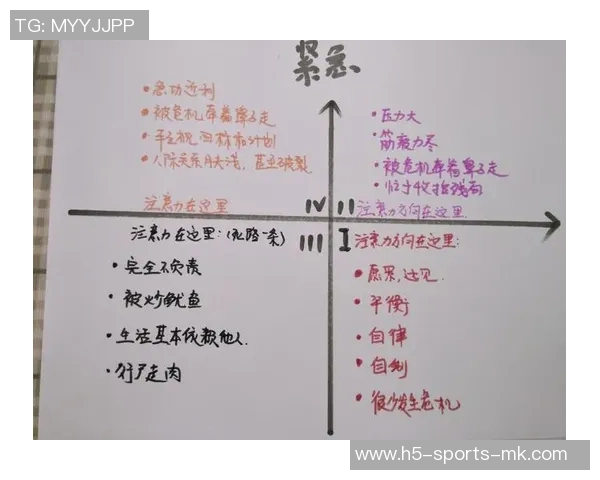 TG: MYYJJPP
紧急
• 急功近利
• 被危机牵着鼻子走
• 平视目标和计划
• 人际关系肤浅，甚至破裂
注意力在这里
IV
• 压力大
• 筋疲力尽
• 被危机牵着鼻子走
• 忙于收拾残局
II
注意力方向在这里
注意力在这里：(死路一条)
III
• 完全不负责
• 被炒鱿鱼
• 生活基本依赖他人
• 行尸走肉
I
注意力方向在这里：
• 愿景，远见
• 平衡
• 自律
• 自制
• 很少发生危机
www.h5-sports-mk.com